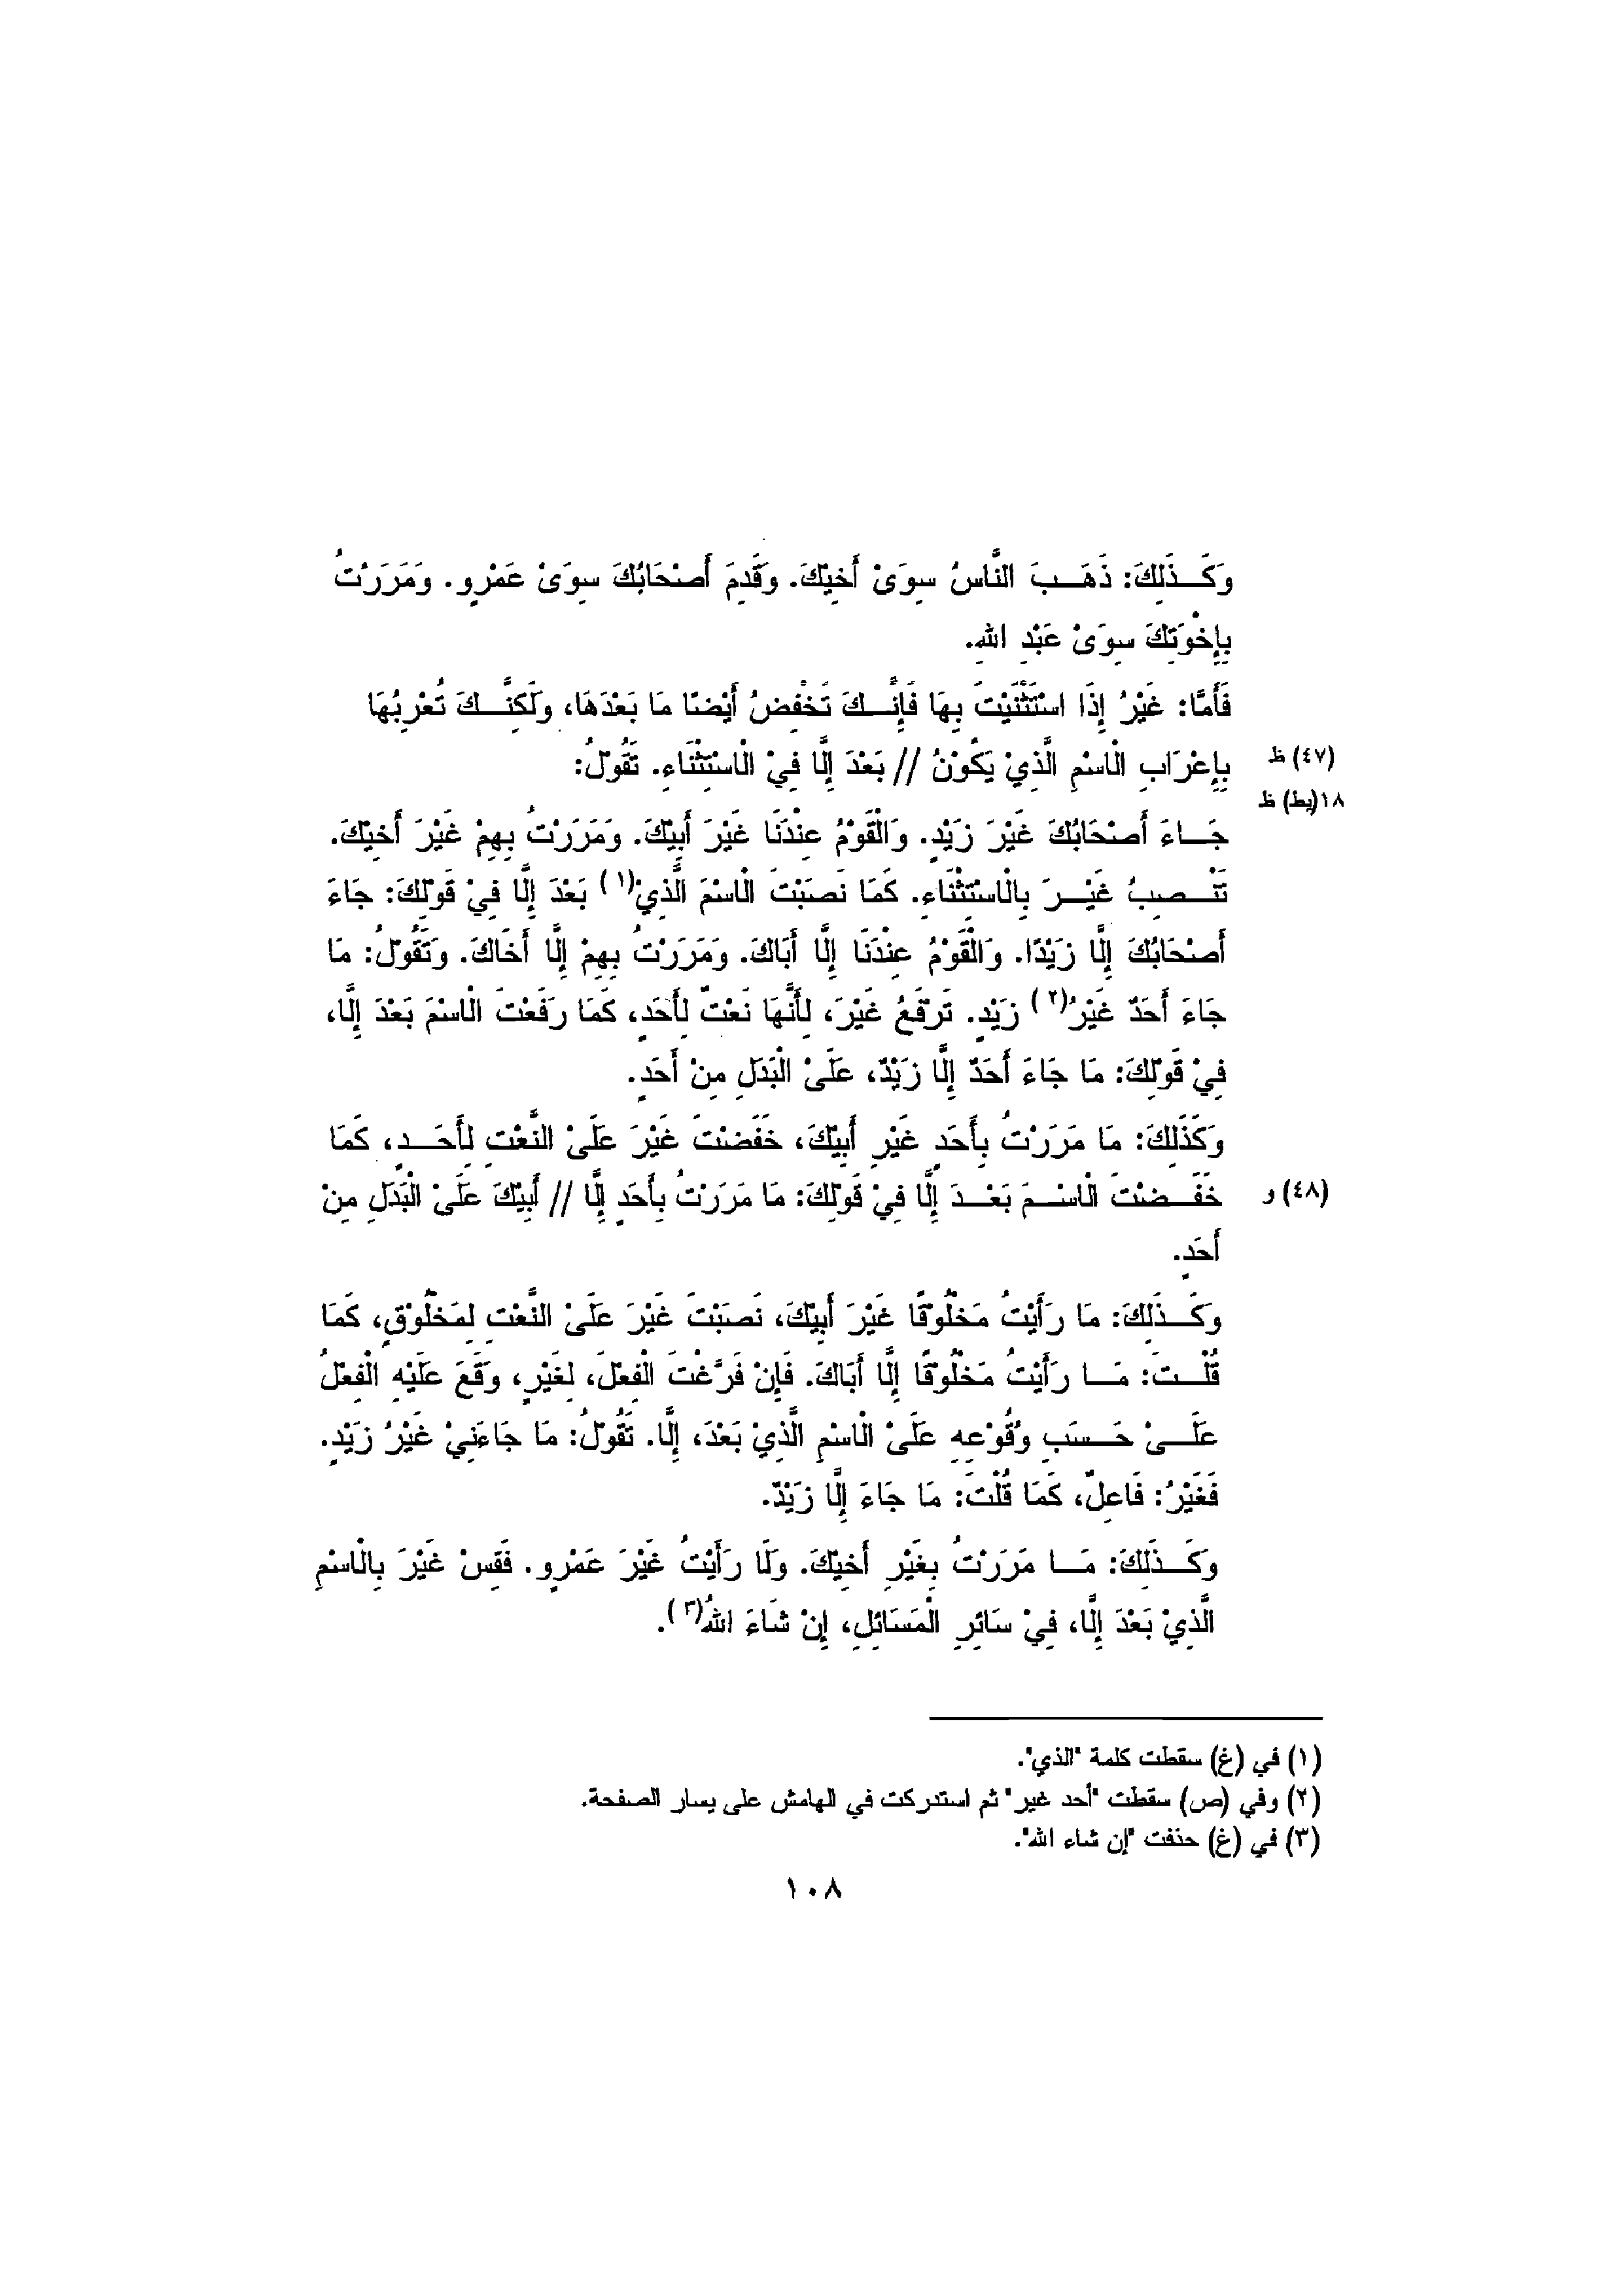 وَكَـــذَلِكَ: ذَهَـــبَ النَّاسُ سِوَىْ أَخِيْكَ. وَقَدِمَ أَصْحَابُكَ سِوَىْ عَمْرٍو. وَمَرَرْتُ
بِإِخْوَتِكَ سِوَىْ عَبْدِ اللهِ.
فَأَمَّا: غَيْرُ إِذَا اسْتَثْنَيْتَ بِهَا فَإِنَّـــكَ تَخْفِضُ أَيْضًا مَا بَعْدَهَا، وَلَكِنَّـــكَ تُعْرِبُهَا
بِإِعْرَابِ الْاسْمِ الَّذِيْ يَكُوْنُ // بَعْدَ إِلَّا فِيْ الْاسْتِثْنَاءِ. تَقُوْلُ:
(٤٧) ظ
١٨(بط) ظ
جَـــاءَ أَصْحَابُكَ غَيْرَ زَيْدٍ. وَالْقَوْمُ عِنْدَنَا غَيْرَ أَبِيْكَ. وَمَرَرْتُ بِهِمْ غَيْرَ أَخِيْكَ.
تَنْـــصِبُ غَيْـــرَ بِالْاسْتِثْنَاءِ. كَمَا نَصَبْتَ الْاسْمَ الَّذِيْ(١) بَعْدَ إِلَّا فِيْ قَوْلِكَ: جَاءَ
أَصْحَابُكَ إِلَّا زَيْدًا. وَالْقَوْمُ عِنْدَنَا إِلَّا أَبَاكَ. وَمَرَرْتُ بِهِمْ إِلَّا أَخَاكَ. وَتَقُوْلُ: مَا
جَاءَ أَحَدٌ غَيْرُ(٢) زَيْدٍ. تَرْفَعُ غَيْرَ، لِأَنَّهَا نَعْتٌ لِأَحَدٍ، كَمَا رَفَعْتَ الْاسْمَ بَعْدَ إِلَّا،
فِيْ قَوْلِكَ: مَا جَاءَ أَحَدٌ إِلَّا زَيْدٌ، عَلَىْ الْبَدَلِ مِنْ أَحَدٍ.
وَكَذَلِكَ: مَا مَرَرْتُ بِأَحَدٍ غَيْرِ أَبِيْكَ، خَفَضْتَ غَيْرَ عَلَىْ النَّعْتِ لِأَحَـــدٍ، كَمَا
خَفَـــضْتَ الْاسْـــمَ بَعْـــدَ إِلَّا فِيْ قَوْلِكَ: مَا مَرَرْتُ بِأَحَدٍ إِلَّا // أَبِيْكَ عَلَىْ الْبَدَلِ مِنْ
(٤٨) و
أَحَدٍ.
وَكَـــذَلِكَ: مَا رَأَيْتُ مَخْلُوْقًا غَيْرَ أَبِيْكَ، نَصَبْتَ غَيْرَ عَلَىْ النَّعْتِ لِمَخْلُوْقٍ، كَمَا
قُلْـــتَ: مَـــا رَأَيْتُ مَخْلُوْقًا إِلَّا أَبَاكَ. فَإِنْ فَرَّغْتَ الْفِعْلَ، لِغَيْرٍ، وَقَعَ عَلَيْهِ الْفِعْلُ
عَلَـــىْ حَـــسَبِ وُقُوْعِهِ عَلَىْ الْاسْمِ الَّذِيْ بَعْدَ، إِلَّا. تَقُوْلُ: مَا جَاءَنِيْ غَيْرُ زَيْدٍ.
فَغَيْرُ: فَاعِلٌ، كَمَا قُلْتَ: مَا جَاءَ إِلَّا زَيْدٌ.
وَكَـــذَلِكَ: مَـــا مَرَرْتُ بِغَيْرِ أَخِيْكَ. وَلَا رَأَيْتُ غَيْرَ عَمْرٍو. فَقِسْ غَيْرَ بِالْاسْمِ
الَّذِيْ بَعْدَ إِلَّا، فِيْ سَائِرِ الْمَسَائِلِ، إِنْ شَاءَ اللهُ(٣).
(١) في (غ) سقطت كلمة "الذي".
(٢) وفي (ص) سقطت "أحد غير" ثم استدركت في الهامش على يسار الصفحة.
(٣) في (غ) حذفت "إن شاء الله".
١٠٨